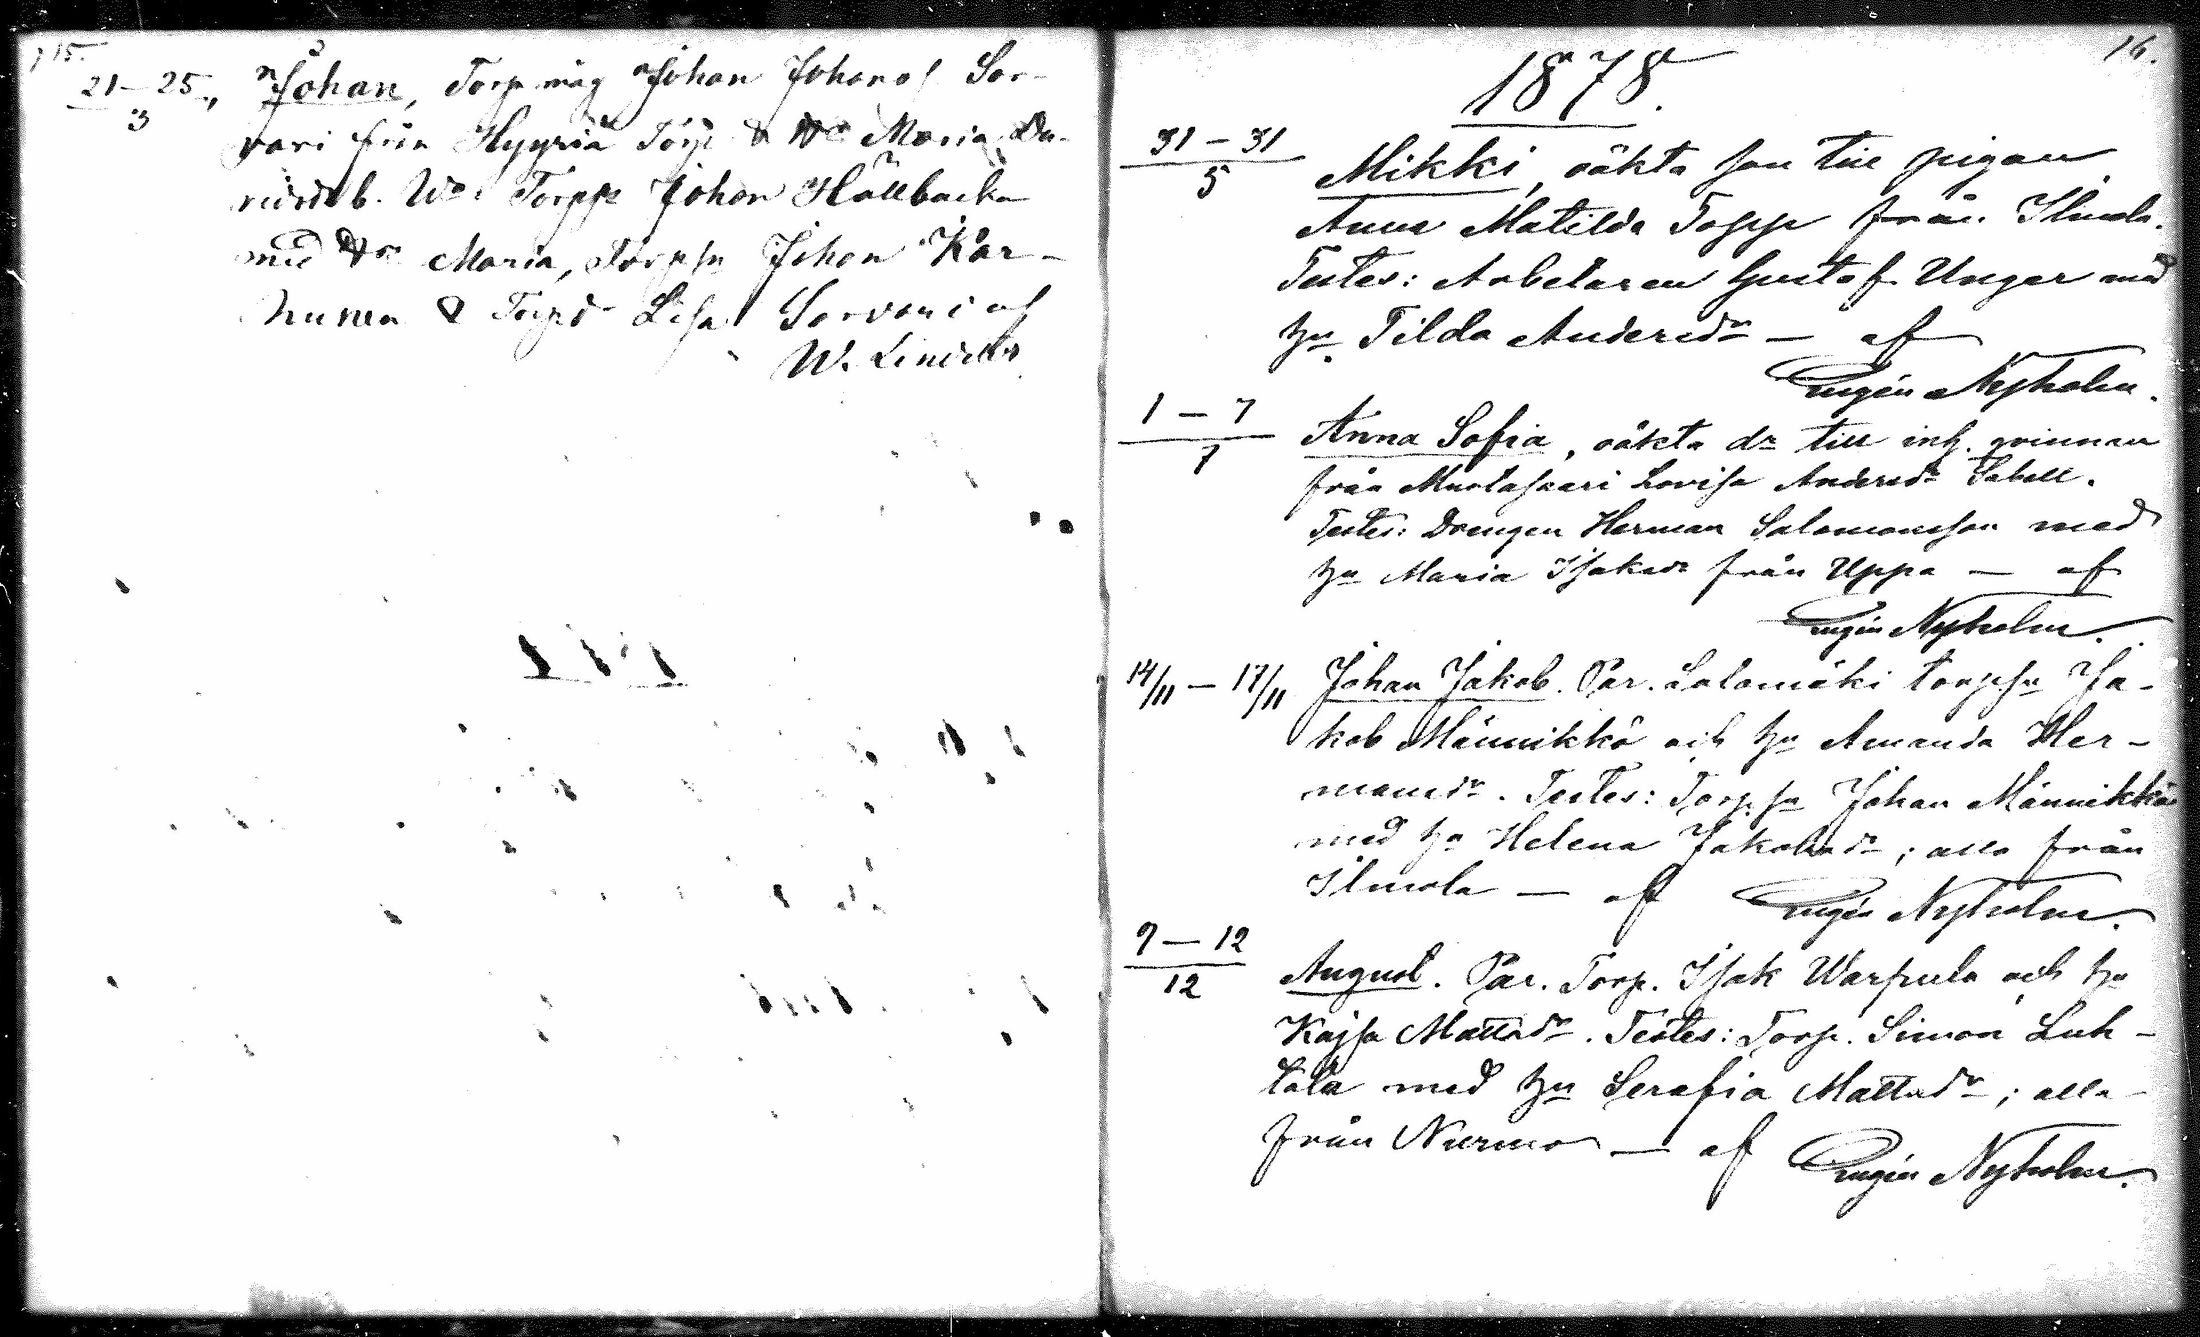 15.
21–25/3 Johan, Torp måg Johan Johans. Sor-
vari från Hyyriä Torp & Maria Da-
vidsd b. Torp Johan Hällbacka
med Maria, Torpsn Johan Kar-
hunen & Torpd Lisa Sorvari af
W. Lindell
16.
1878.
31–31/5 Mikki, oäkta son till pigan
Anna Matilda Topp från Ilmola.
Testes: Arbetaren Gustaf Unger med
hu Tilda Andersdr – af
Eugén Nyholm.
1–7/7 Anna Sofia, oäkta dr till inh. qvinnan
från Mustasaari Lovisa Andersdr Sabell.
Testes: Drengen Herman Salomonsson med
hu Maria Isaksdr från Uppa – af
Eugén Nyholm.
14/11 – 17/11 Johan Jakob. Par. Salomäki torpsn Ja-
kob Männikkö och hu Amanda Her-
mansdr. Testes: Torpsn Johan Männikkö
med hu Helena Jakobsdr; alla från
Ilmola – af Eugén Nyholm.
9–12/12 August. Par. Torp. Isak Warpula och hu
Kajsa Mattsdr. Testes: Torp. Simon Luh-
tala med hu Serafia Mattsdr; alla
från Nurmo – af Eugén Nyholm.